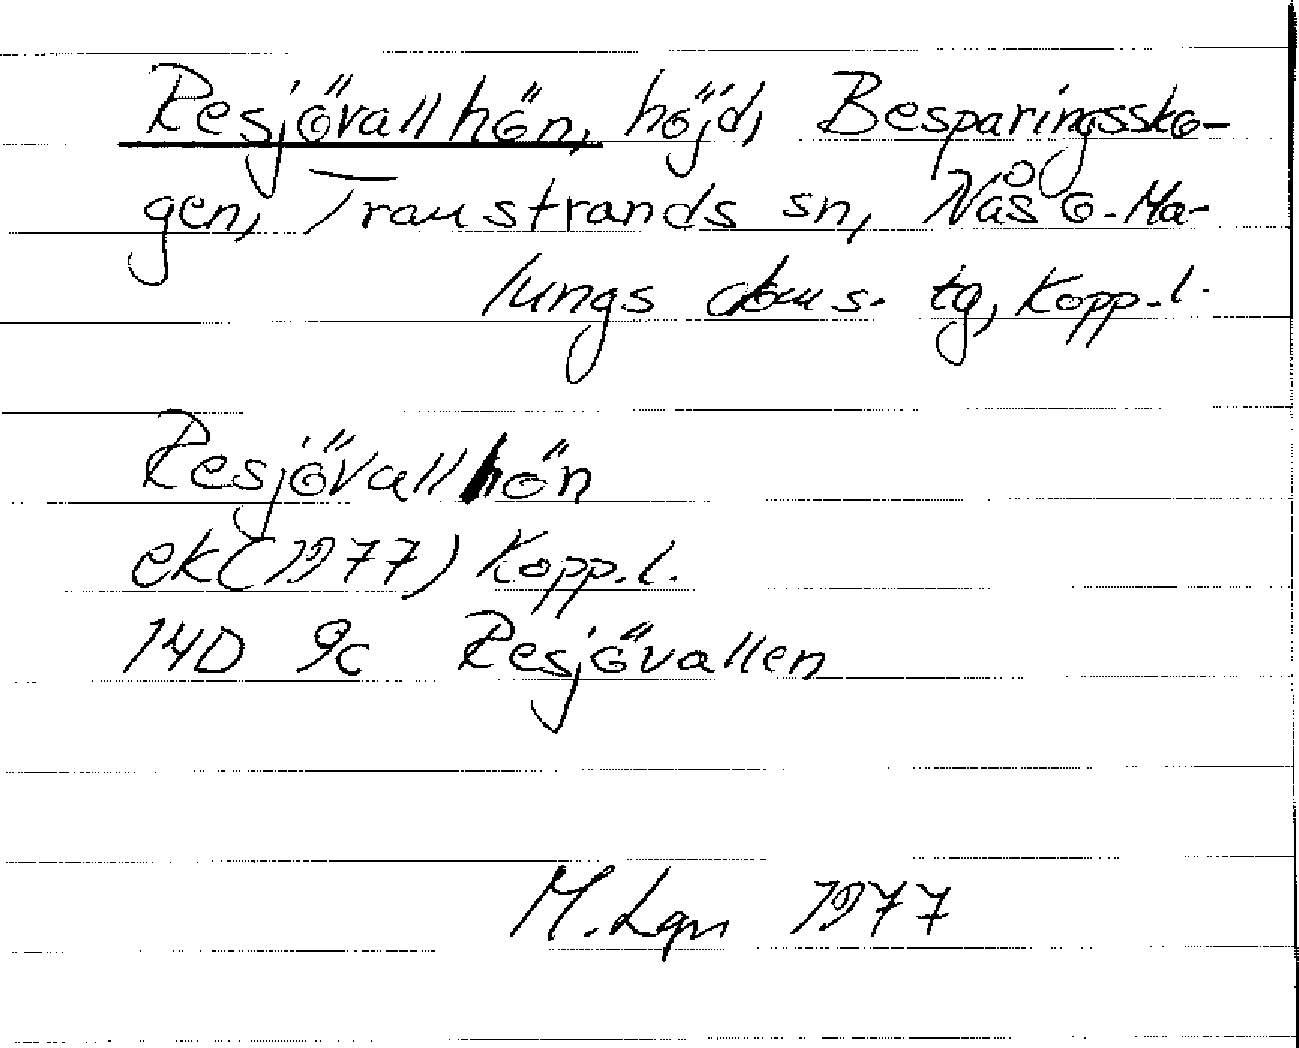 Resjövallhön, höjd, Besparingssko-
gen, Transtrands sn, Nås o. Ma-
lungs doms. tg, Kopp. l.
Resjövallhön
ek (1977) Kopp. l.
14D 9c Resjövallen
M. Lgn 1977